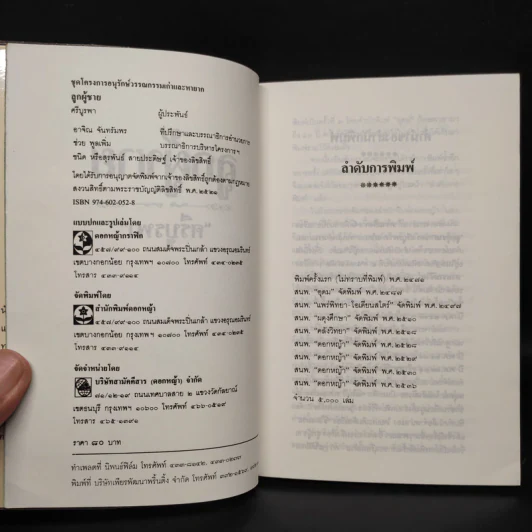 ชุดโครงการอนุรักษ์วรรณกรรมเก่าและหายาก
ลูกผู้ชาย
ศรีบูรพา ผู้ประพันธ์
อาจิณ จันทรัมพร ที่ปรึกษาและบรรณาธิการอำนวยการ
ช่วย พูลเพิ่ม บรรณาธิการบริหารโครงการฯ
ชนิด หรือสุรพันธ์ สายประดิษฐ์ เจ้าของลิขสิทธิ์
โดยได้รับการอนุญาตจัดพิมพ์จากเจ้าของลิขสิทธิ์ถูกต้องตามกฎหมาย
สงวนลิขสิทธิ์ตามพระราชบัญญัติลิขสิทธิ์ พ.ศ. ๒๕๒๑
ISBN 974-602-052-8
แบบปกและรูปเล่มโดย
ดอกหญ้ากราฟิค
๔๕๗/๙๙-๑๐๐ ถนนสมเด็จพระปิ่นเกล้า แขวงอรุณอมรินทร์
เขตบางกอกน้อย กรุงเทพฯ ๑๐๗๐๐ โทรศัพท์ ๔๓๔-๐๒๓๕
โทรสาร ๔๓๓-๙๑๑๕
จัดพิมพ์โดย
สำนักพิมพ์ดอกหญ้า
๔๕๗/๙๙-๑๐๐ ถนนสมเด็จพระปิ่นเกล้า แขวงอรุณอมรินทร์
เขตบางกอกน้อย กรุงเทพฯ ๑๐๗๐๐ โทรศัพท์ ๔๓๔-๐๒๓๕
โทรสาร ๔๓๓-๙๑๑๕
จัดจำหน่ายโดย
บริษัทสามัคคีสาร (ดอกหญ้า) จำกัด
๗๑/๑๒-๑๗ ถนนเทศบาลสาย ๒ แขวงวัดกัลยาณ์
เขตธนบุรี กรุงเทพฯ ๑๐๖๐๐ โทรศัพท์ ๔๖๖-๐๕๑๙
โทรสาร ๔๖๕-๑๓๙๑
ราคา ๘๐ บาท
ทำเพลทที่ นิพนธ์ฟิล์ม โทรศัพท์
พิมพ์ที่ บริษัทเพียรพัฒนาพริ้นติ้ง จำกัด โทรศัพท์
ลำดับการพิมพ์
******
พิมพ์ครั้งแรก (ไม่ทราบที่พิมพ์) พ.ศ. ๒๔๗๑
สนพ. "อุดม" จัดพิมพ์ พ.ศ. ๒๔๘๗
สนพ. "แพร่พิทยา-โอเดียนสโตร์" จัดพิมพ์ พ.ศ. ๒๔๙๘
สนพ. "ผดุงศึกษา" จัดพิมพ์ พ.ศ. ๒๕๑๐
สนพ. "คลังวิทยา" จัดพิมพ์ พ.ศ. ๒๕๑๘
สนพ. "ดอกหญ้า" จัดพิมพ์ พ.ศ. ๒๕๒๘
สนพ. "ดอกหญ้า" จัดพิมพ์ พ.ศ. ๒๕๒๙
สนพ. "ดอกหญ้า" จัดพิมพ์ พ.ศ. ๒๕๓๐
สนพ. "ดอกหญ้า" จัดพิมพ์ พ.ศ. ๒๕๓๖
จำนวน ๕,๐๐๐ เล่ม